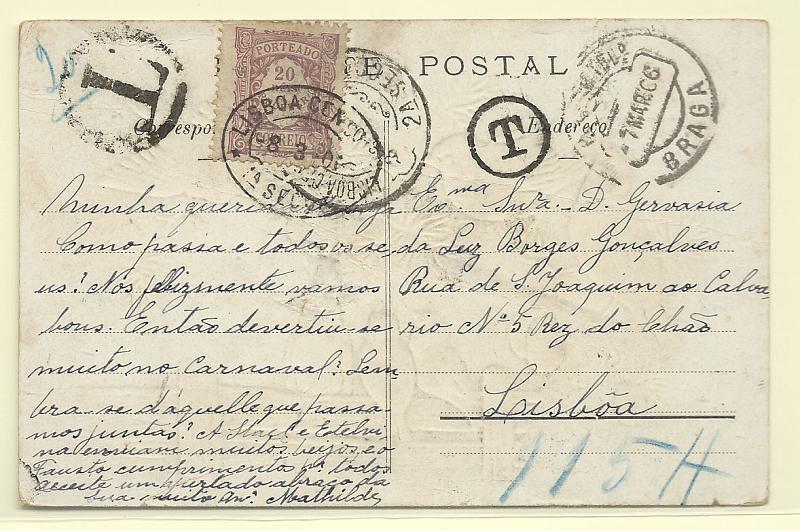 20
T
PORTEADO
20
CORREIO
LISBOA CENTRAL
8 3
2A SEC
E POSTAL
T
7 MAR 06
BRAGA
Correspo
Endereço
Minha querida
Como passa e todos os se
us? Nós felizmente vamos
bons. Então devertiu-se
muito no Carnaval? Lem
bra-se d'aquelle que passa
mos juntas? A e Estelvi
na enviam muitos beijos e o
Fausto cumprimenta pª todos
aceite um apertado abraço da
Sua muito Amª Mathilde
Exma Snra. D. Gervasia
da Luz Borges Gonçalves
Rua de S. Joaquim ao Calva
rio Nº 5 Rez do Chão
Lisbôa
115H